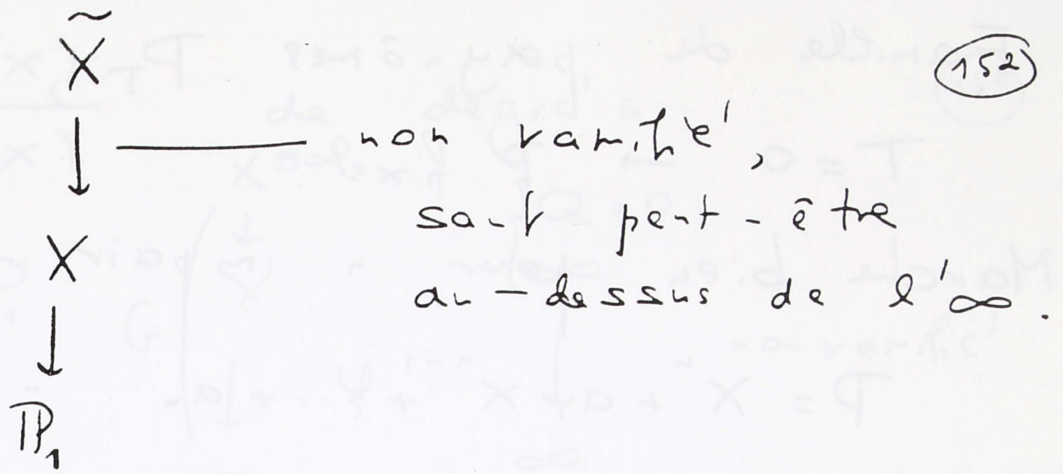 X̃
152
↓ ——— non ramifié,
sauf peut-être
X
au-dessus de l'∞.
↓
ℙ₁